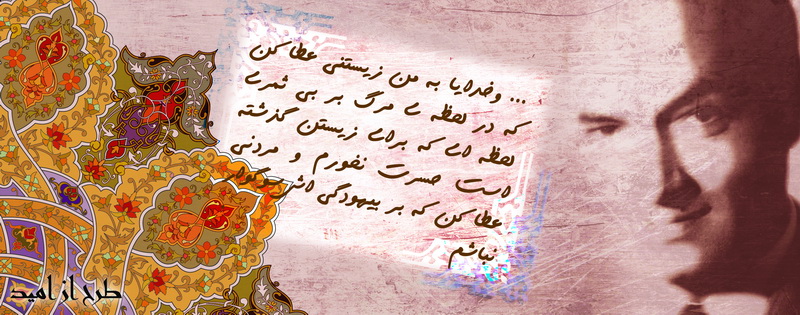 ... وخدایا به من زیستنی عطا کن
که در لحظه ی مرگ بر بی ثمری
لحظه ای که برای زیستن گذشته
است حسرت نخورم و مردنی
عطا کن که بر بیهودگی اش سوگوار
نباشم
طرح از امید